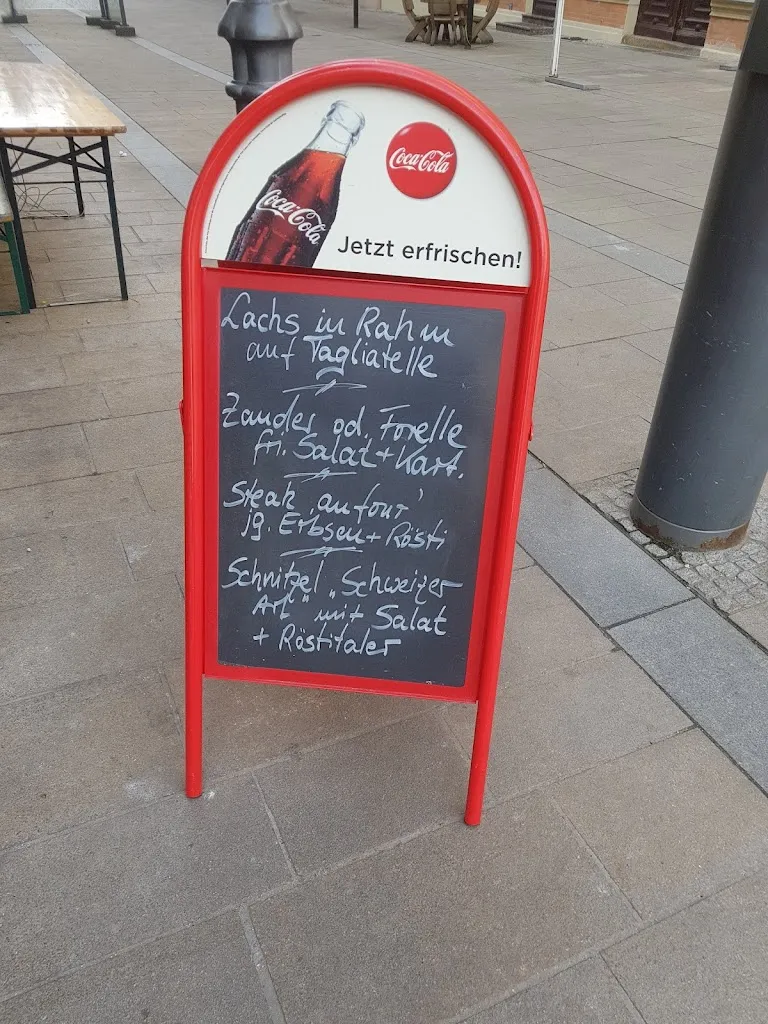 Coca-Cola
Coca-Cola
Jetzt erfrischen!
Lachs in Rahm
auf Tagliatelle
Zander od. Forelle
fri. Salat + Kart.
Steak "aufour"
jg. Erbsen + Rösti
Schnitzel "Schweizer
Art" mit Salat
+ Röstitaler